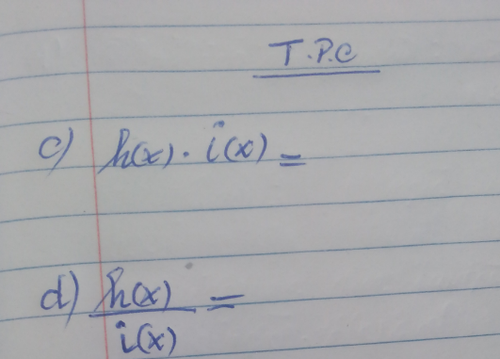 T.P.C
c) h(x) · i(x) =
d) h(x)/i(x) =